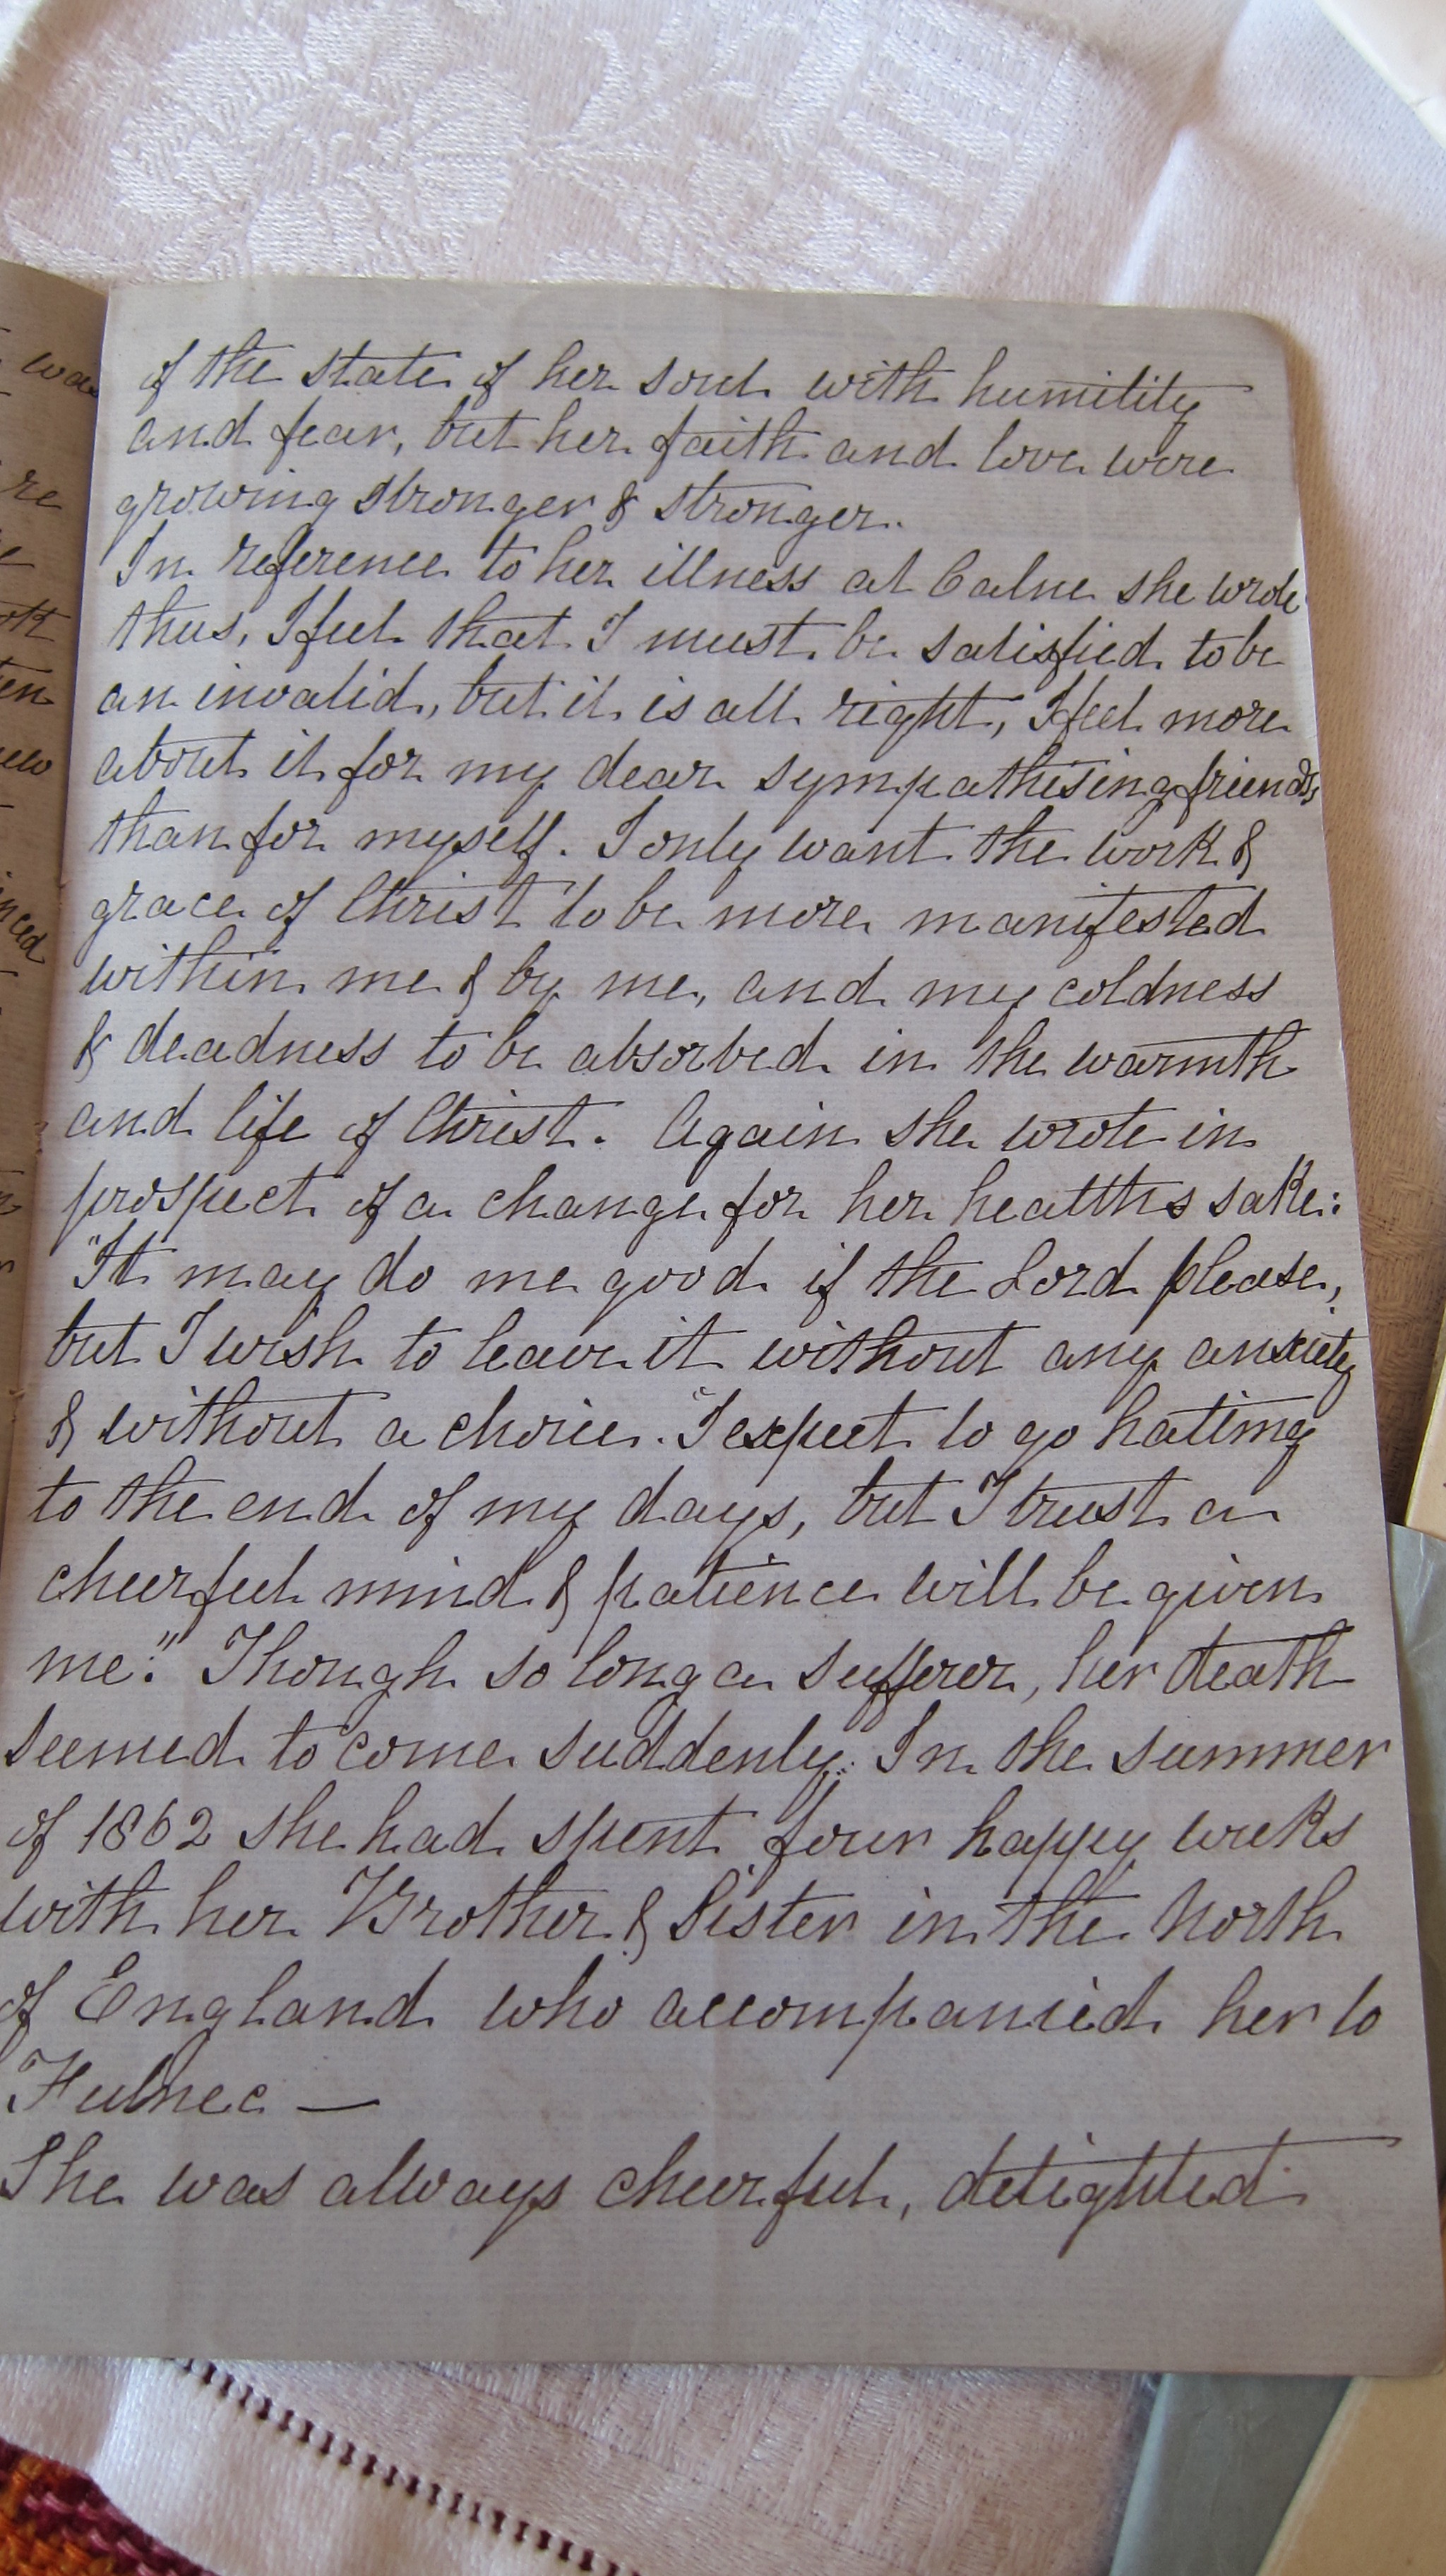 of the state of her soul with humility
and fear, but her faith and love were
growing stronger & stronger.
In reference to her illness at Calne she wrote
thus, I feel that I must be satisfied to be
an invalid, but it is all right, I feel more
about it for my dear sympathising friends,
than for myself. I only want the work &
grace of Christ to be more manifested
within me & by me, and my coldness
& deadness to be absorbed in the warmth
and life of Christ. Again she wrote in
prospect of a change for her healths sake:
"It may do me good if the Lord please,
but I wish to leave it without any anxiety
& without a choice. "I expect to go halting
to the end of my days, but I trust a
cheerful mind & patience will be given
me." Though so long a sufferer, her death
seemed to come suddenly. In the summer
of 1862 she had spent four happy weeks
with her Brother & Sister in the North
of England who accompanied her to
Fulnec —
She was always cheerful, delighted
was
re
en